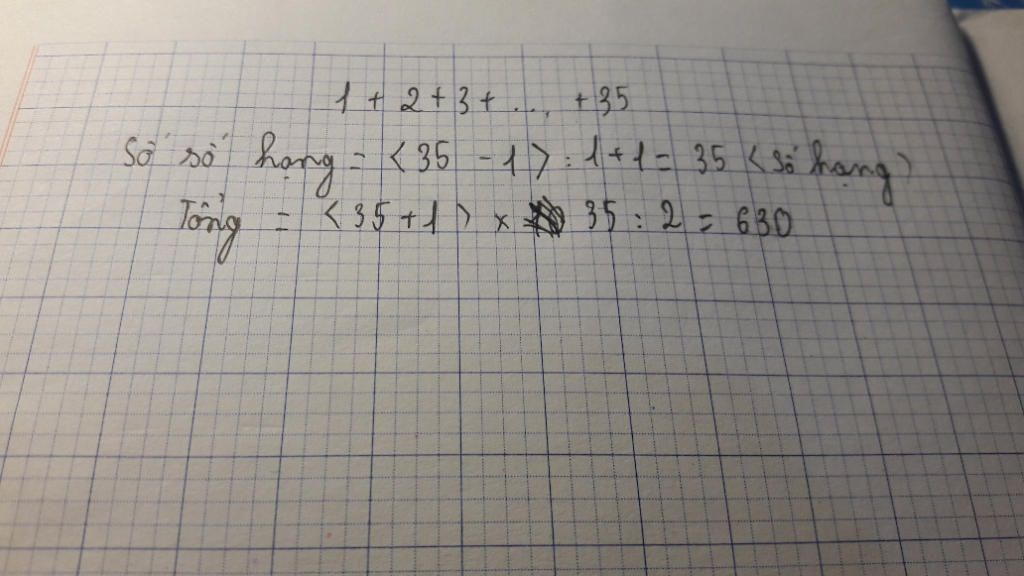 1 + 2 + 3 + ... + 35
Số số hạng = < 35 - 1 > : 1 + 1 = 35 < số hạng >
Tổng = < 35 + 1 > x 35 : 2 = 630